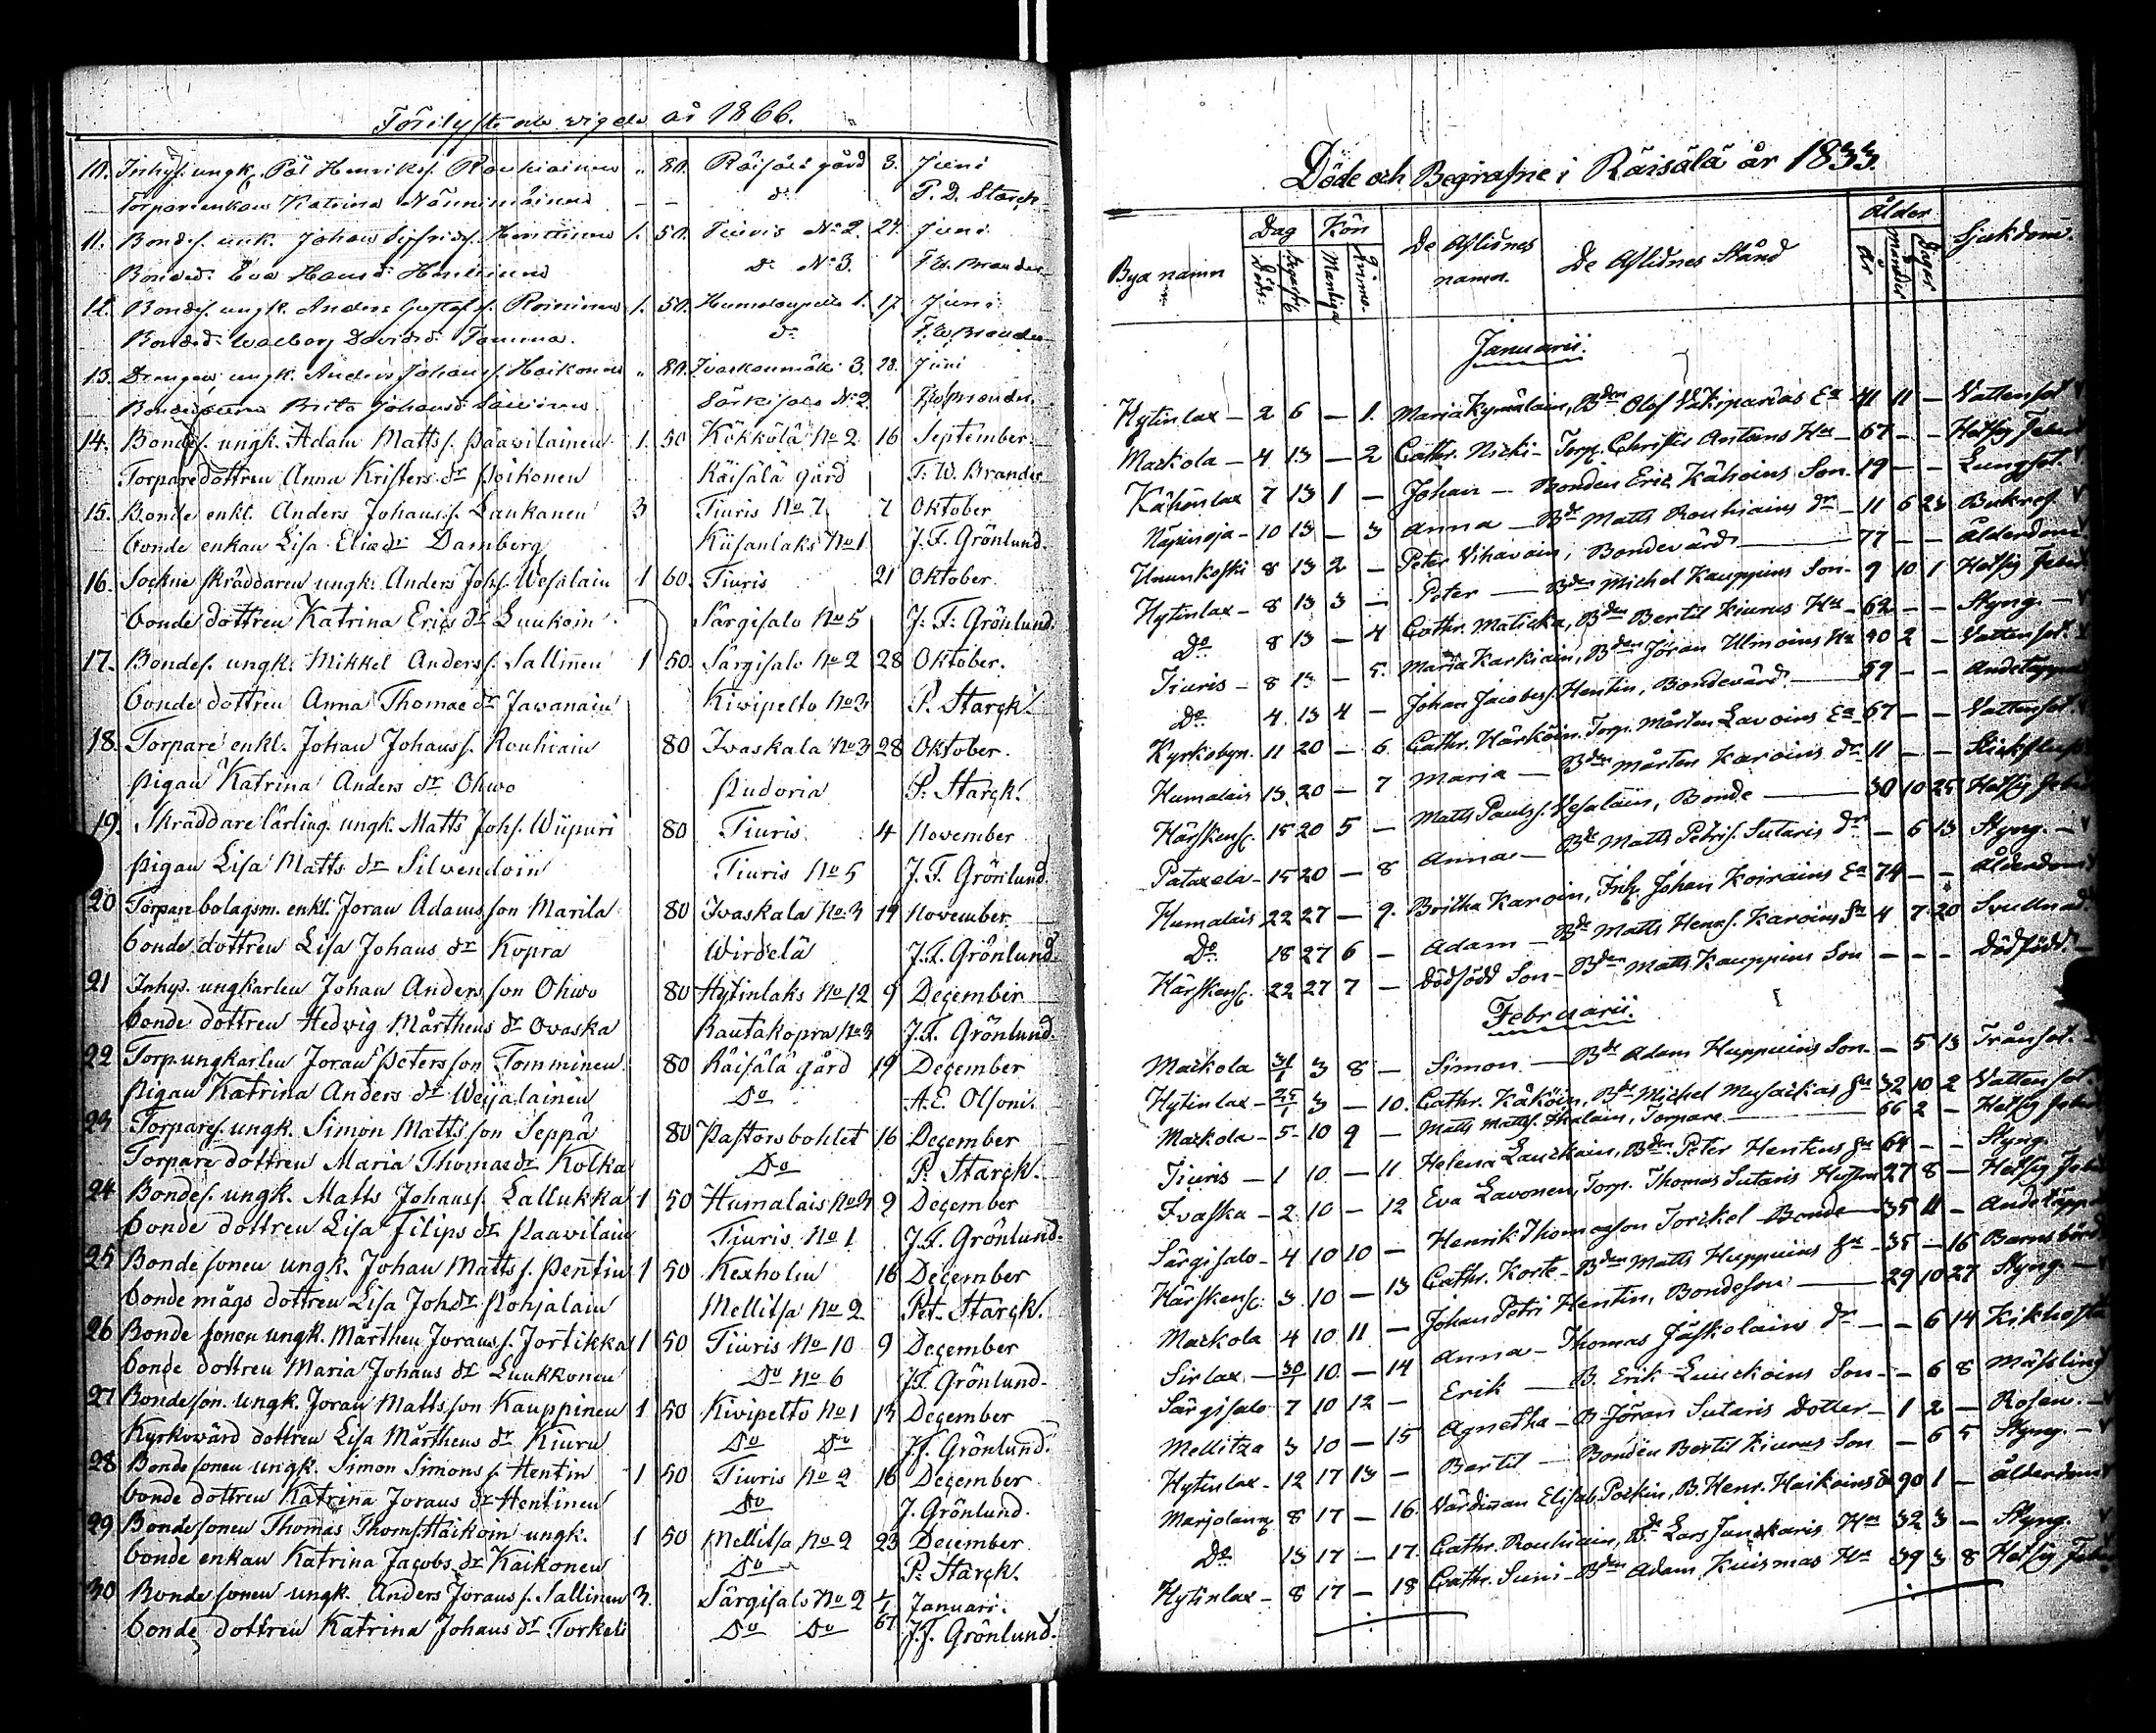 år 1866.
10. Inhys. ungk. Pål Henriks. Rouhiainen " 80. Räisälä gård 3. Juni
Torpareenkan Katrina Nännimäinen - - do P. D. Starck
11. Bondes. unk. Johan Sigfrids. Henttinen 1. 50. Tiuris No 2. 24. Juni
Bonded. Eva Hansd. Henttinen do No 3. F. W. Brander
12. Bondes. ungk. Anders Gustafs. Roininen 1. 50. Humalaspelto 1. 17. Juni
Bonded. Walborg Davidsd. Tamma. do F. W. Brander
13. Drengen ungk. Anders Johans. Haikonen " 80. Ivaskanmäki 3. 28. Juni
Brita Johansd. Särkisalo No 2 F. W. Brander.
14. Bondes. ungk. Adam Matts s. Paavilainen 1. 50 Kökkölä No 2 16 September
Torparedottren Anna Kristers dr Poikonen Räisälä gård F. W. Brander
15. Bonde enkl. Anders Johans s. Laukanen 3 Tiuris No 7 7 Oktober
bonde enkan Lisa Eliædr Damberg Kiisanlaks No 1 J. F. Grönlund.
16. Sockne skräddaren ungk. Anders Johs. Wesalain 1 60. Tiuris 21 Oktober.
bonde dottren Katrina Erics dr Luukoin Särgisalo No 5 J. F. Grönlund.
17. Bondes. ungk. Mikkel Anders s. Sallinen 1 50. Särgisalo No 2 28 Oktober.
bonde dottren Anna Thomae dr Jawanain Kiwipelto No 3 P. Starck.
18. Torpare enkl. Johan Johans s. Rouhiain 80 Ivaskala No 3 28 Oktober.
pigan Katrina Anders dr Ohwo Pudoria P. Starck.
19. Skräddare lärling. ungk. Matts Johs. Wiipuri 80 Tiuris 4 November
pigan Lisa Matts dr Silwendoin Tiuris No 5 J. F. Grönlund.
20 Torpare bolagsm. enkl. Joran Adams son Marila 80 Ivaskala No 3 19 November
bonde dottren Lisa Johans dr Kopra Wirdelä J. F. Grönlund.
21 Inhys. ungkarlen Johan Anders son Ohwo 80 Hytinlaks No 12 9 December
bonde dottren Hedwig Mårthens dr Owaska Rautakopra No 3 J. F. Grönlund.
22 Torp. ungkarlen Joran Peters son Tomminen 80 Räisälä gård 19 December
pigan Katrina Anders dr Weijalainen Do A. E. Olsoni.
23 Torpares. ungk. Simon Matts son Seppä 80 Pastorsbohlet 16 December
Torpare dottren Maria Thomae dr Kolka Do P. Starck.
24 Bondes. ungk. Matts Johans s. Lallukka 1 50 Humalais No 3 9 December
bonde dottren Lisa Filips dr Paavilain Tiuris No 1 J. F. Grönlund.
25 Bonde sonen ungk. Johan Matts s. Pentin 1 50 Kexholm 16 December
bonde mågs dottren Lisa Johs dr Pohjalain Mellitsa No 2 Pet. Starck.
26 Bonde sonen ungk. Mårthen Jorans s. Jortikka 1 50 Tiuris No 10 9 December
bonde dottren Maria Johans dr Luukkonen Do No 6 J. F. Grönlund.
27 Bondeson. ungk. Joran Matts son Kauppinen 1 50 Kivipelto No 1 13 December
Kyrkowärd dottren Lisa Mårthens dr Kiuru Do Do J. F. Grönlund.
28 Bonde sonen ungk. Simon Simons s. Hentin 1 50 Tiuris No 2 16 December
bonde dottren Katrina Jorans dr Hentinen Do J. Grönlund.
29 Bondesonen Thomas Thoms. Haikoin ungk. 1 50 Mellitsa No 2 23 December
bonde enkan Katrina Jacobs dr Kaikonen Do P. Starck.
30 Bonde sonen ungk. Anders Jorans s. Sallinen 3. Särgisalo No 2 1/1 Januari.
bonde dottren Katrina Johans dr Torkeli Do Do 67 J. F. Grönlund.
Döde och Begrafne i Räisälä år 1833.
Bya namn Dag Döds- Begrafn. Kön Manliga Qvinno- De Aflidnes namn. De Aflidnes Stånd Ålder År Månader Dagar Sjukdom.
Januarii.
Hytinlax - 2 6 - 1. Maria Kymälain, Bden Olof Väkiparias Ea 41 11 - Vattensot
Mackola - 4 13 - 2 Cathr. Nicki - Torp. Christer Antans Hu 67 - - Hetsig Feber
Kähönlax 7 13 1 - Johan - Bonden Eric Kähöins Son 19 - - Lungsot.
Näpinoja - 10 13 - 3 Anna - Bde Matts Rouhiains dr 11 6 23
Unnunkoski 8 13 2 - Peter Vihavain, Bondevärd 77 - - Ålderdom
Hytinlax - 8 13 3 - Peter - Bden Michel Kauppins Son 9 10 1 Hetsig Feber
Do 8 13 - 4 Cathr. Maticka, Bden Bertil Kiurus Hu 62 - - Styng.
Tiuris - 8 13 - 5. Maria Karkiain, Bden Jöran Ulmoins Hu 40 2 - Vattensot
Do 4. 13 4 - Johan Jacobs s. Hentin, Bondevärd 59 - - Andetäppa
Kyrkobyn. 11 20 - 6. Cathr. Härköin. Torp. Mårten Lavoins Ea 67 - - Vattensot.
Humalais 13. 20 - 7 Maria - Bden Mårten Karoins dr 11 - -
Härskens. 15 20 5 - Matts Pauls s. Vesaläin, Bonde 30 10 25 Hetsig Feber
Pataxela - 15 20 - 8 Anna - Bde Matts Petris. Sutaris dr - 6 13 Styng.
Humalais 22 27 - 9. Britha Karoin, Inh. Johan Koirains Ea 74 - - Ålderdom
Do 18 27 6 - Adam - Bde Matts Henrs. Karoins Sn 4 7 20 Svullnad.
Härskens. 22 27 7 - Dödfödd Son - Bden Matts Kauppins Son - - - Dödfödd
Februarii.
Mackola 31/1 3 8 - Simon - Bde Adam Huppuins Son - 5 13 Trånsot.
Hytinlax - 25/1 3 - 10. Cathr. Käköin, Bde Michel Musackas Hu 32 10 2 Vattensot.
Mackola - 5 - 10 9 - Matts Matts s. Ihalain, Torpare 66 2 - Hetsig Feber
Tiuris - 1 10 - 11 Helena Lauckain, Bden Peter Hentins Hu 64 - - Styng.
Ivaska - 2 10 - 12 Eva Lavonen, Torp. Thomas Sutaris Hustru 27 8 - Hetsig Feber
Särgisalo - 4 10 10 - Henrik Thomasson Torickel Bonde 35 11 - Andetäppa
Härskens. 3 10 - 13 Cathr. Korte - Bden Matts Huppuins Hu - 35 - 16 Barnsbörd
Mackola 4 10 11 - Johan Petri Hentin, Bondeson 29 10 27 Styng.
Sirlax. 30/1 10 - 14 Anna - Thomas Jäskoläins dr - 6 14 Kikhosta
Särgisalo 7 10 12 - Erik - B. Erik Lunckoins Son - 6 8 Mässling
Mellitza 3 10 - 15 Agnetha - B Jöran Sutaris Dotter - 1 2 - Rosen.
Hytinlax - 12 17 13 - Bertil - Bonden Bertil Kiurus Son - 6 5 Styng.
Marjolann. 8 17 - 16. Värdinnan Elisab. Pöckin, B. Henr. Haikoins Ea 90 1 - Ålderdom
Do 13 17 - 17. Cathr. Rouhiain, Bde Lars Junckaris Hu 32 3 - Styng.
Hytinlax - 8 17 - 18 Cathr. Suni - Bden Adam Kuismas Hu 39 3 8 Hetsig Feber